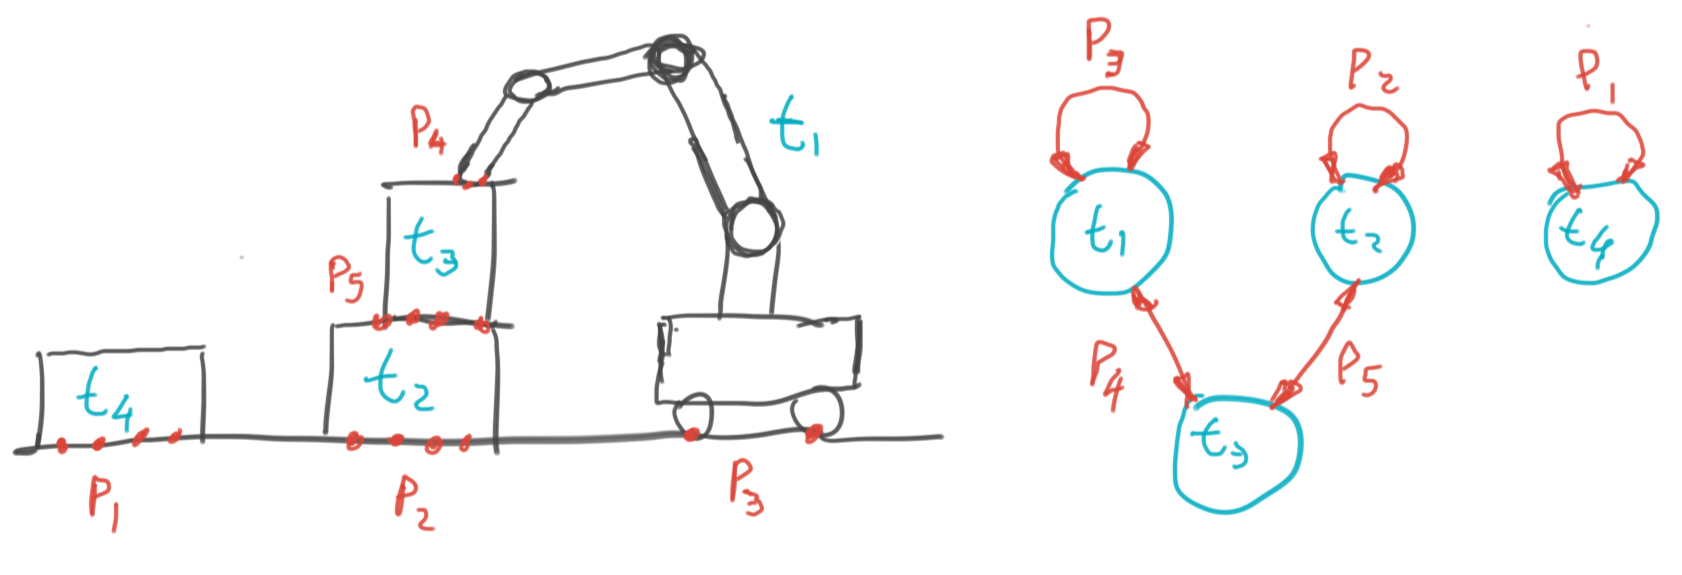 P4
t1
t3
P5
t4
t2
P1
P2
P3
P3
P2
P1
t1
t2
t4
P4
P5
t3